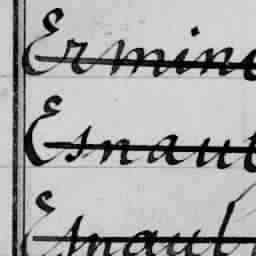 Ermine
Esnaul
Esnaul